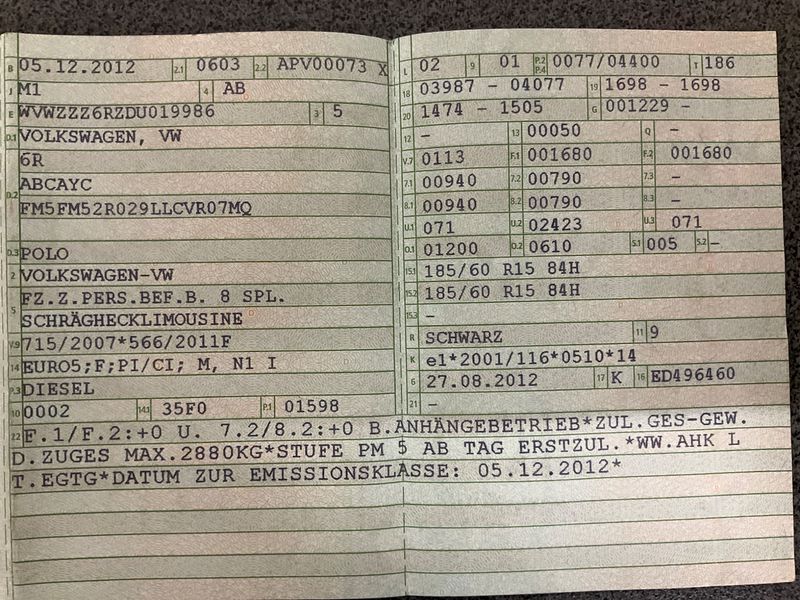 B 05.12.2012 2.1 0603 2.2 APV00073 X
J M1 4 AB
E WVWZZZ6RZDU019986 3 5
D.1 VOLKSWAGEN, VW
6R
D.2 ABCAYC
FM5FM52R029LLCVR07MQ
D.3 POLO
2 VOLKSWAGEN-VW
5 FZ.Z.PERS.BEF.B. 8 SPL.
SCHRÄGHECKLIMOUSINE
V.9 715/2007*566/2011F
14 EURO5;F;PI/CI; M, N1 I
P.3 DIESEL
10 0002 14.1 35F0 P.1 01598
L 02 9 01 P.2 P.4 0077/04400 T 186
18 03987 - 04077 19 1698 - 1698
20 1474 - 1505 G 001229 -
12 - 13 00050 Q -
V.7 0113 F.1 001680 F.2 001680
7.1 00940 7.2 00790 7.3 -
8.1 00940 8.2 00790 8.3 -
U.1 071 U.2 02423 U.3 071
O.1 01200 O.2 0610 S.1 005 S.2 -
15.1 185/60 R15 84H
15.2 185/60 R15 84H
15.3 -
R SCHWARZ 11 9
K e1*2001/116*0510*14
6 27.08.2012 17 K 16 ED496460
21 -
22 F.1/F.2:+0 U. 7.2/8.2:+0 B.ANHÄNGEBETRIEB*ZUL.GES-GEW.
D.ZUGES MAX.2880KG*STUFE PM 5 AB TAG ERSTZUL.*WW.AHK L
T.EGTG*DATUM ZUR EMISSIONSKLASSE: 05.12.2012*